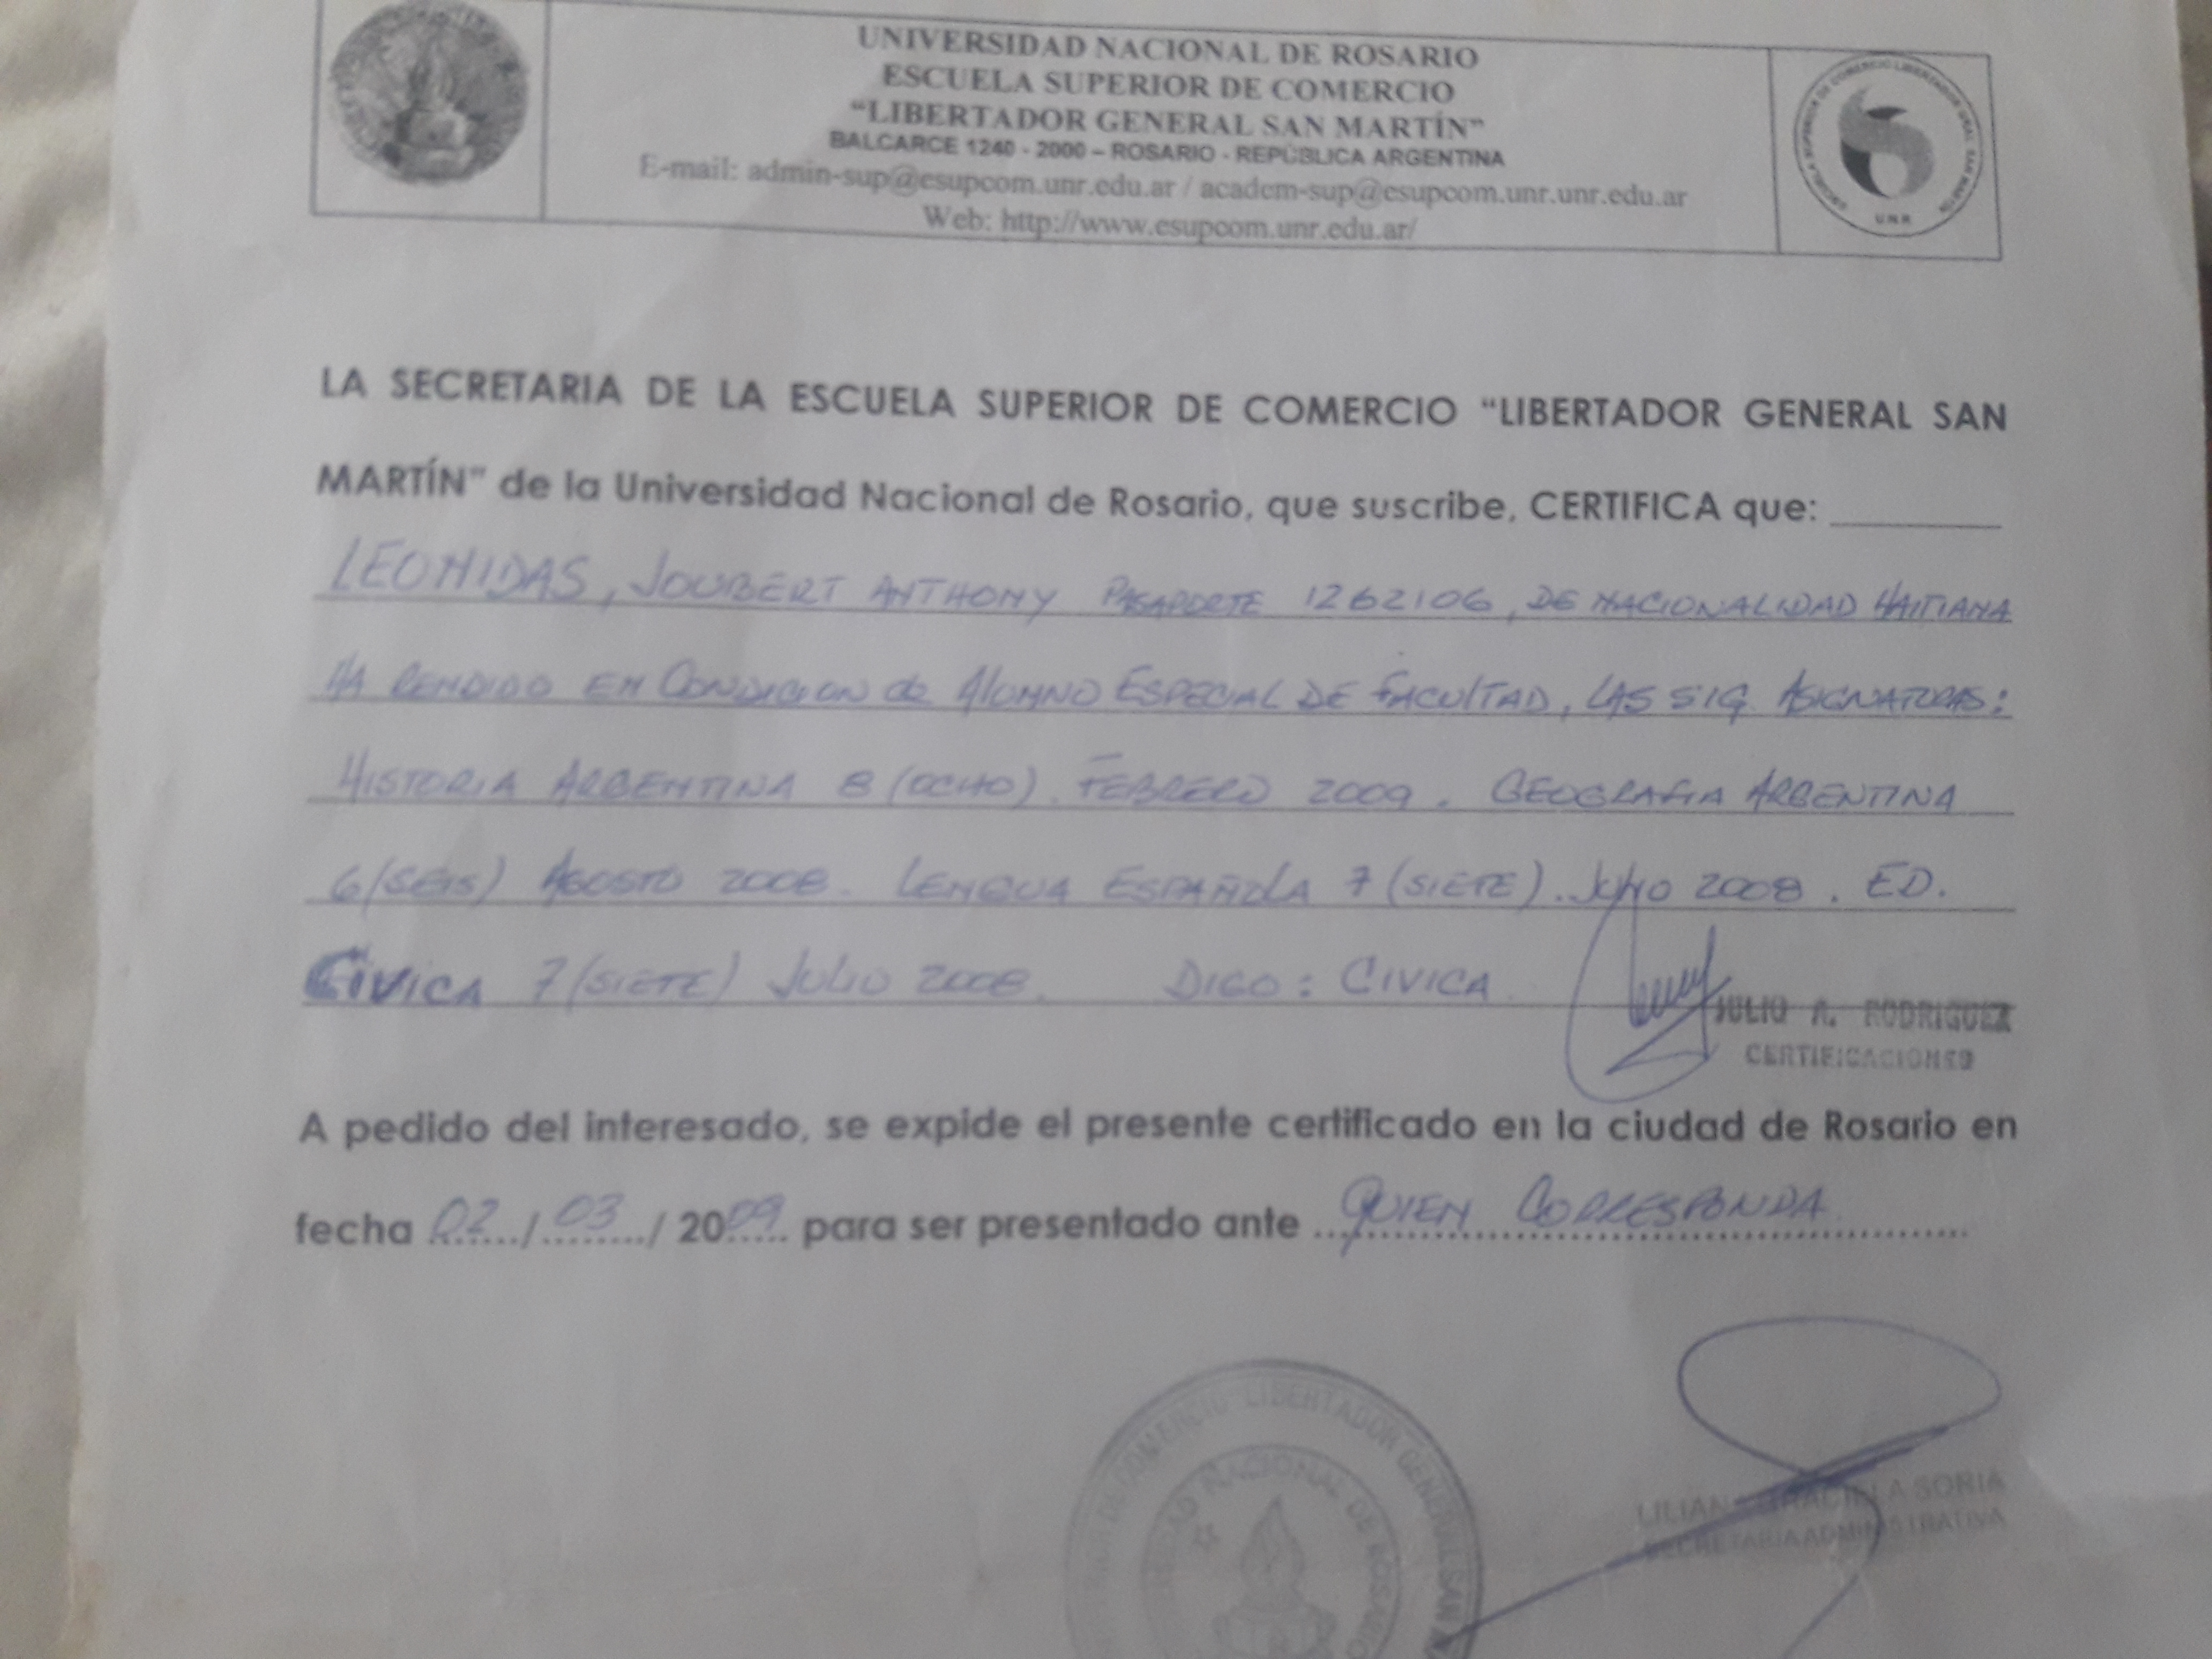 UNIVERSIDAD NACIONAL DE ROSARIO
ESCUELA SUPERIOR DE COMERCIO
"LIBERTADOR GENERAL SAN MARTÍN"
BALCARCE 1240 - 2000 – ROSARIO - REPÚBLICA ARGENTINA
E-mail: admin-sup@csupcom.unr.edu.ar / academ-sup@csupcom.unr.unr.edu.ar
Web: http://www.csupcom.unr.edu.ar/
ESCUELA SUPERIOR DE COMERCIO LIBERTADOR GRAL. SAN MARTIN
UNR
LA SECRETARIA DE LA ESCUELA SUPERIOR DE COMERCIO "LIBERTADOR GENERAL SAN
MARTÍN" de la Universidad Nacional de Rosario, que suscribe, CERTIFICA que:
LEONIDAS, JOUBERT ANTHONY PASAPORTE 1262106, DE NACIONALIDAD HAITIANA
HA RENDIDO EN CONDICION de ALUMNO ESPECIAL DE FACULTAD, LAS SIG. ASIGNATURAS:
HISTORIA ARGENTINA 8 (OCHO) FEBRERO 2009. GEOGRAFIA ARGENTINA
6 (SEIS) AGOSTO 2008. LENGUA ESPAÑOLA 7 (SIETE). JULIO 2008. ED.
CIVICA 7 (SIETE) JULIO 2008. DIGO: CIVICA.
JULIO A. RODRIGUEZ
CERTIFICACIONES
A pedido del interesado, se expide el presente certificado en la ciudad de Rosario en
fecha 02 / 03 / 2009 para ser presentado ante QUIEN CORRESPONDA.
DE COMERCIO LIBERTADOR GENERAL SAN
NACIONAL DE ROSARIO
LILIANA GRACIELA SORIA
SECRETARIA ADMINISTRATIVA